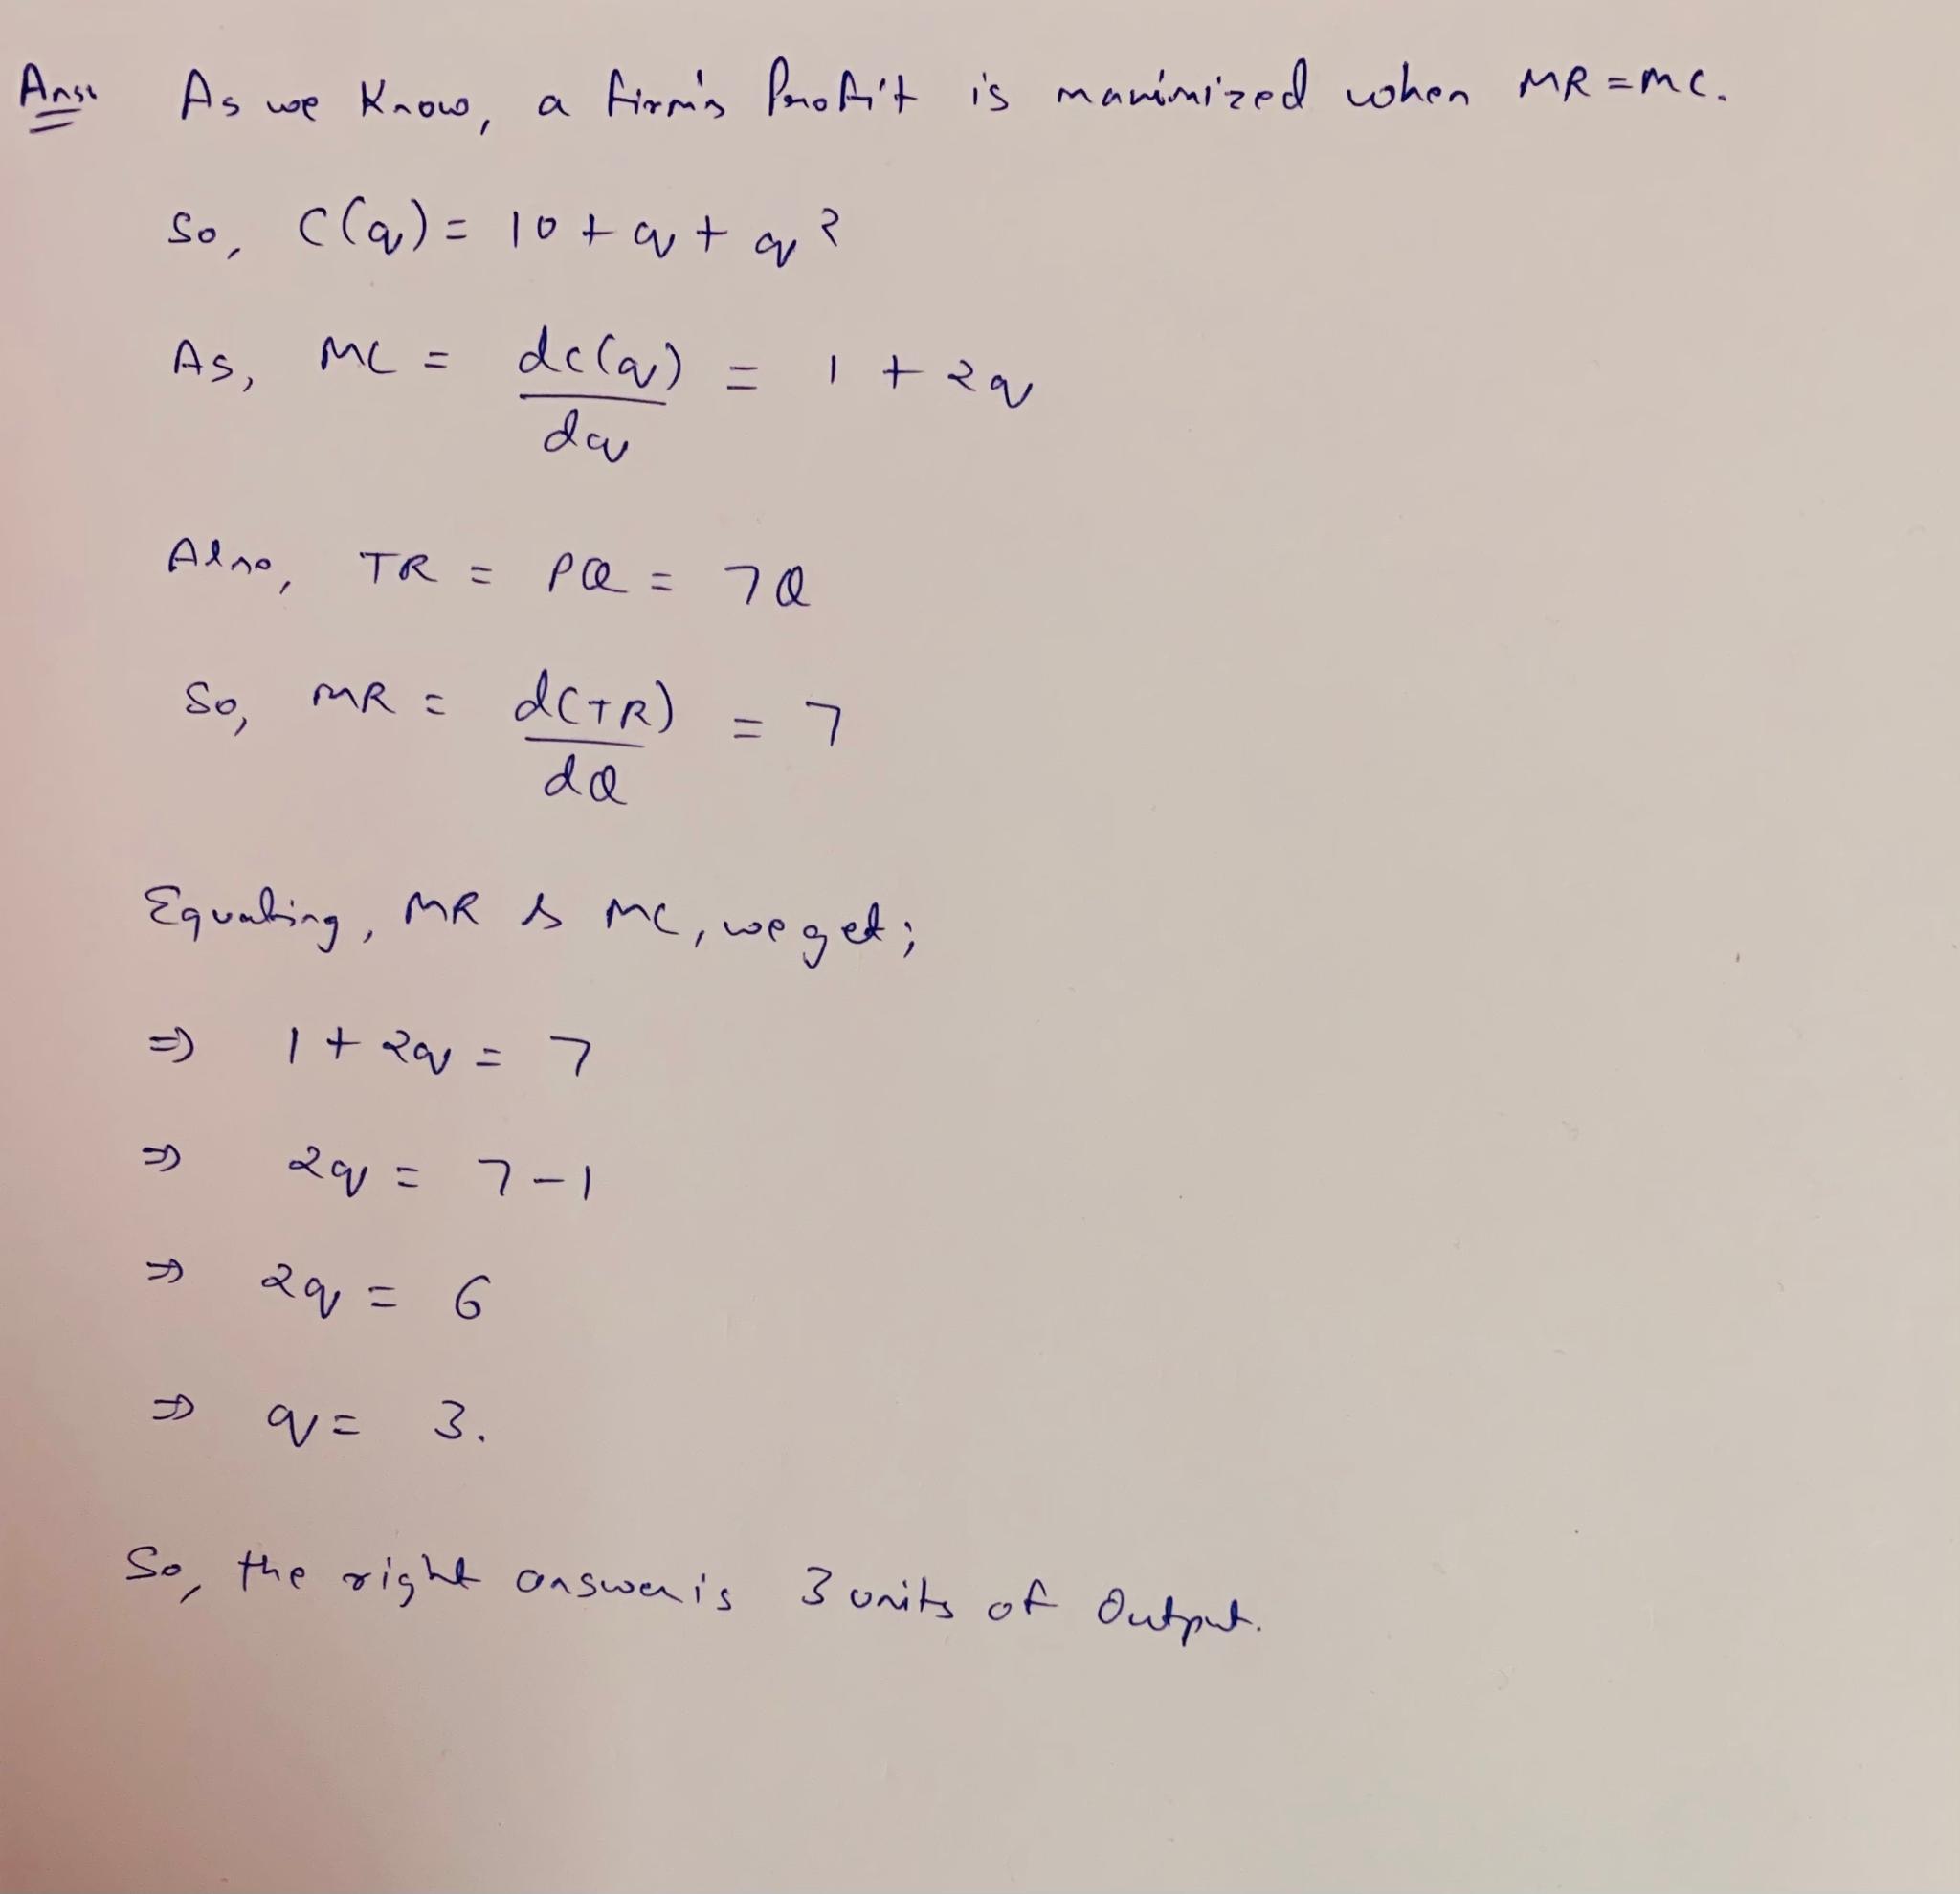 Ans: As we know, a firm's Profit is maximized when MR = MC.
So, C(q) = 10 + q + q²
As, MC = dc(q)/dq = 1 + 2q
Also, TR = PQ = 7Q
So, MR = d(TR)/dQ = 7
Equating, MR & MC, we get;
⇒ 1 + 2q = 7
⇒ 2q = 7 - 1
⇒ 2q = 6
⇒ q = 3.
So, the right answer is 3 units of Output.